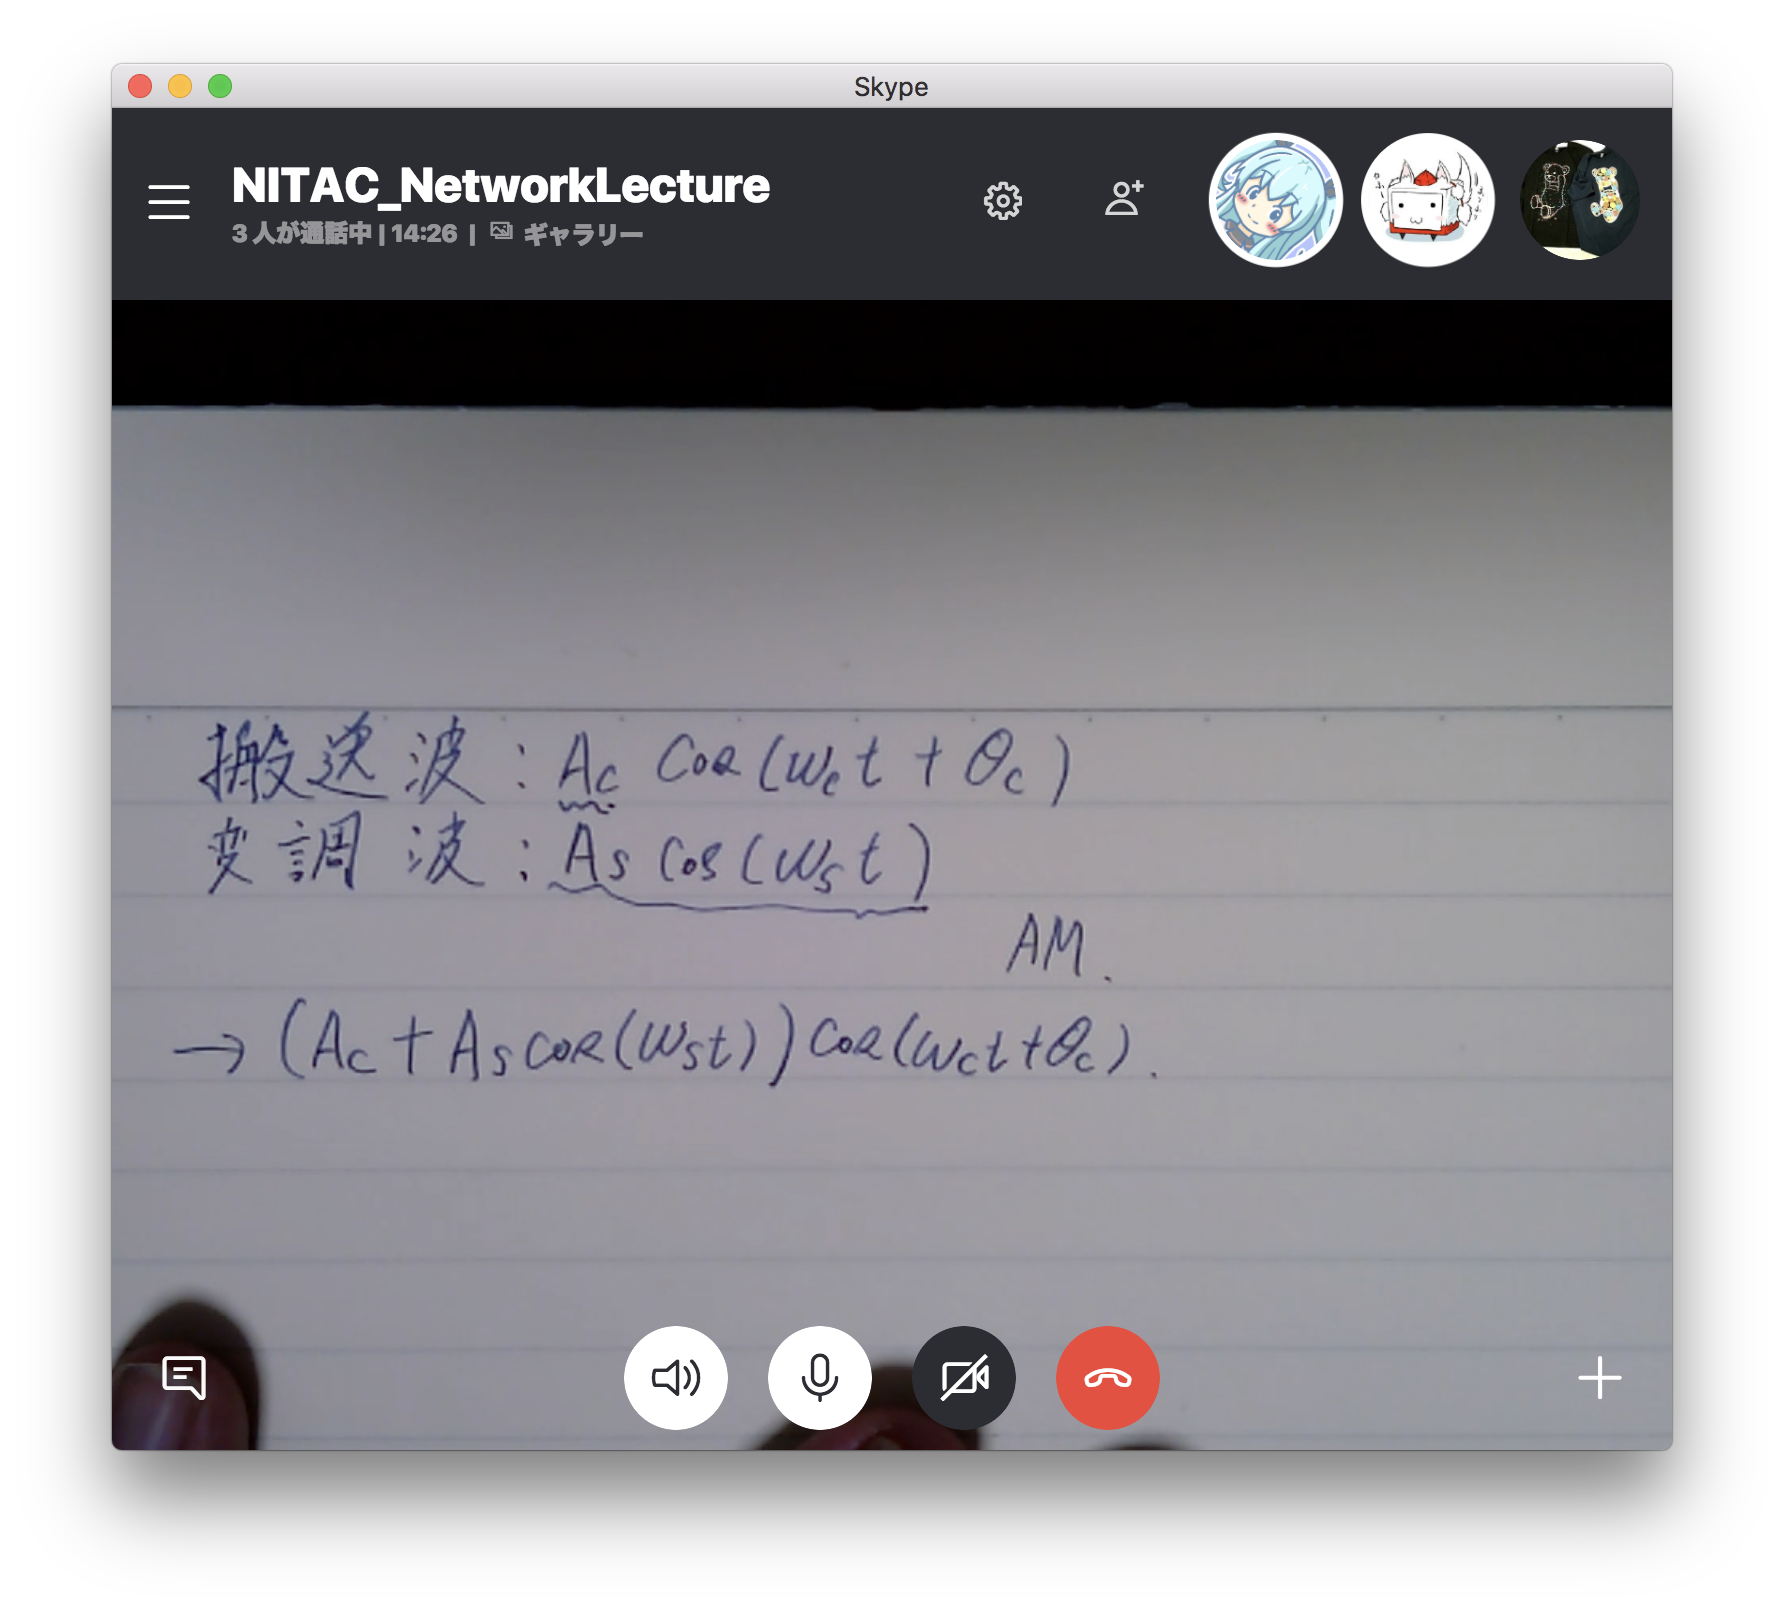 Skype
NITAC_NetworkLecture
3 人が通話中 | 14:26 | ギャラリー
搬送波 : Ac cos(ωct + θc)
変調波 : As cos(ωst)
AM.
→ (Ac + As cos(ωst)) cos(ωct + θc).